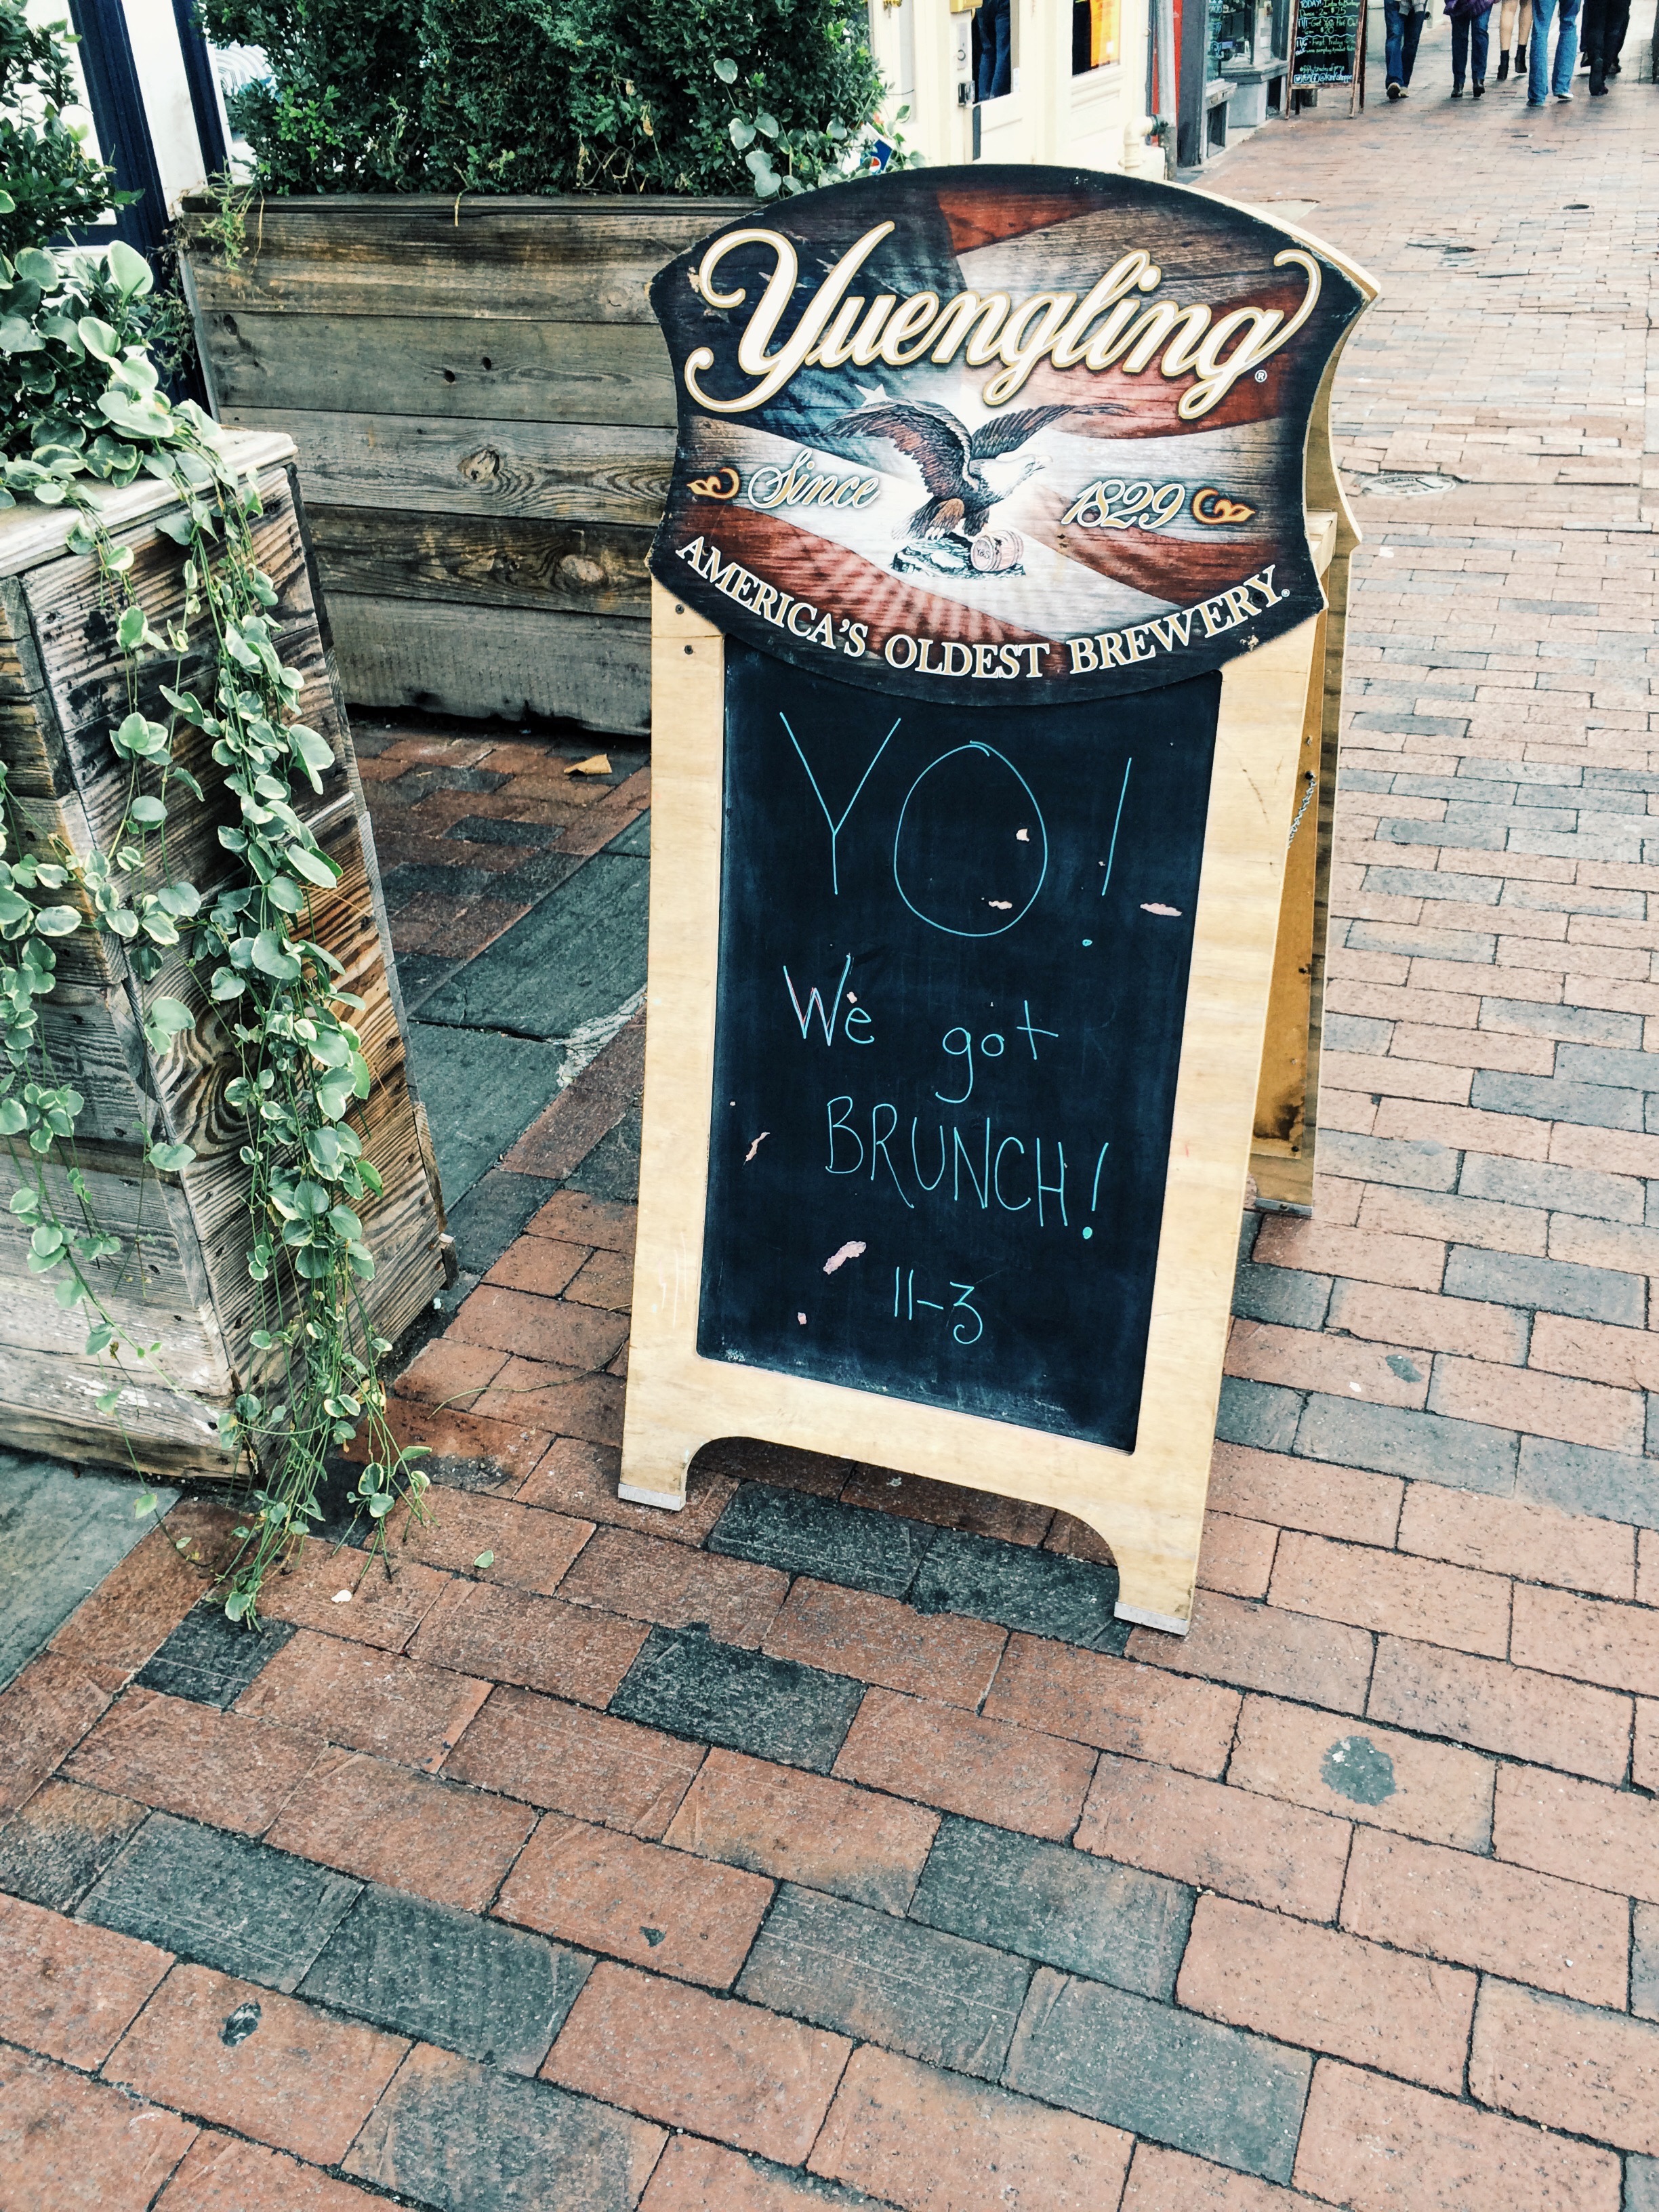 Yuengling®
Since 1829
AMERICA'S OLDEST BREWERY®
YO!
We got
BRUNCH!
11-3